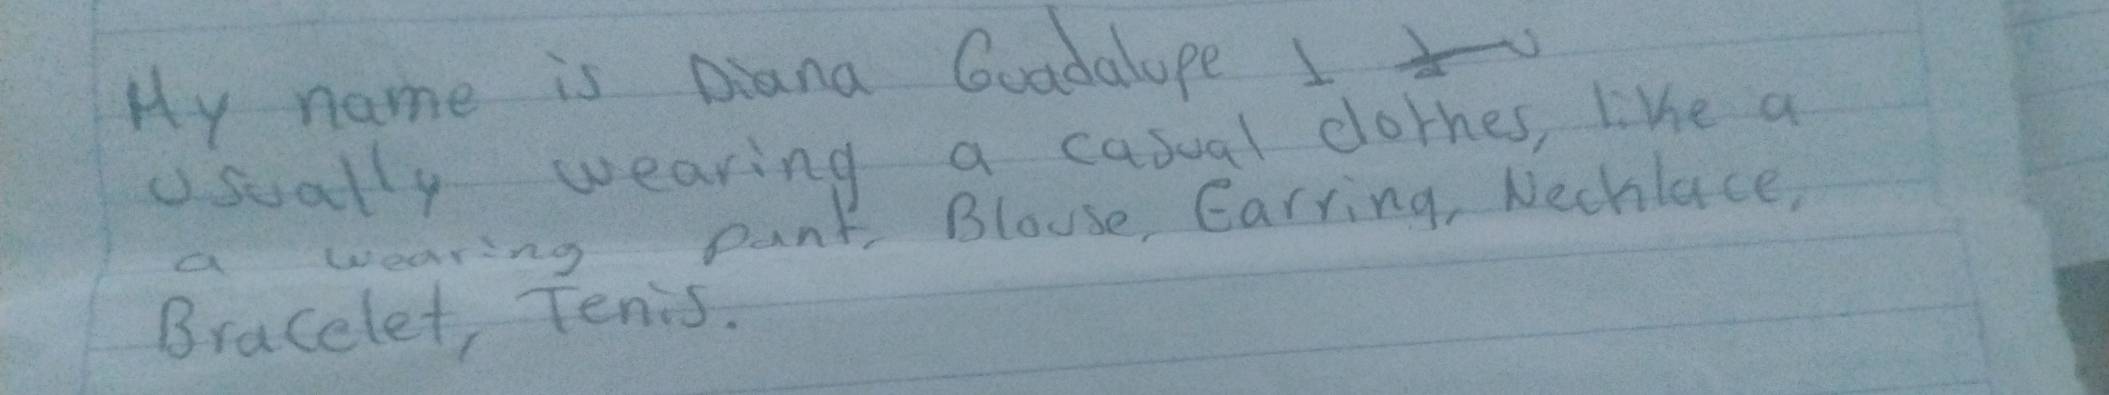 My name is Diana Guadalupe I
usually wearing a casual clothes, like a
a wearing pant, Blouse, Earring, Necklace,
Bracelet, Tenis.